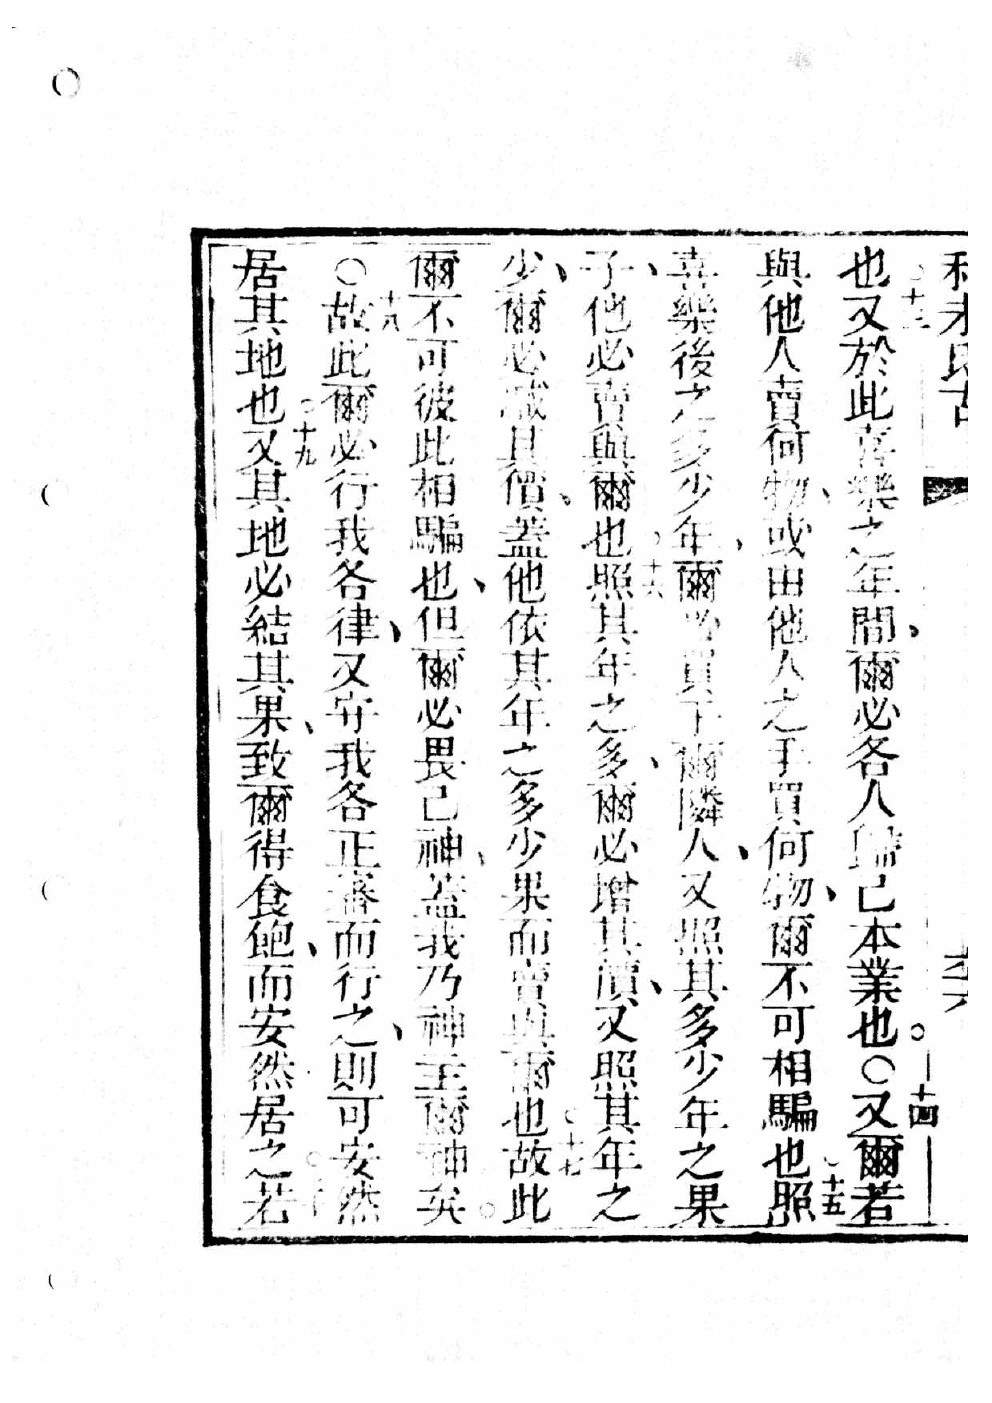 利未氏古
也又於此喜樂之年間爾必各人歸己本業也○又爾若
十三
十四
與他人賣何物或由他人之手買何物爾不可相騙也照
十五
喜樂後之多少年爾必買下爾隣人又照其多少年之果
子他必賣與爾也照其年之多爾必增其價又照其年之
十六
少爾必減其價蓋他依其年之多少果而賣與爾也故此
十七
爾不可彼此相騙也但爾必畏己神蓋我乃神主爾神矣
○故此爾必行我各律又守我各正審而行之則可安然
十八
居其地也又其地必結其果致爾得食飽而安然居之若
十九